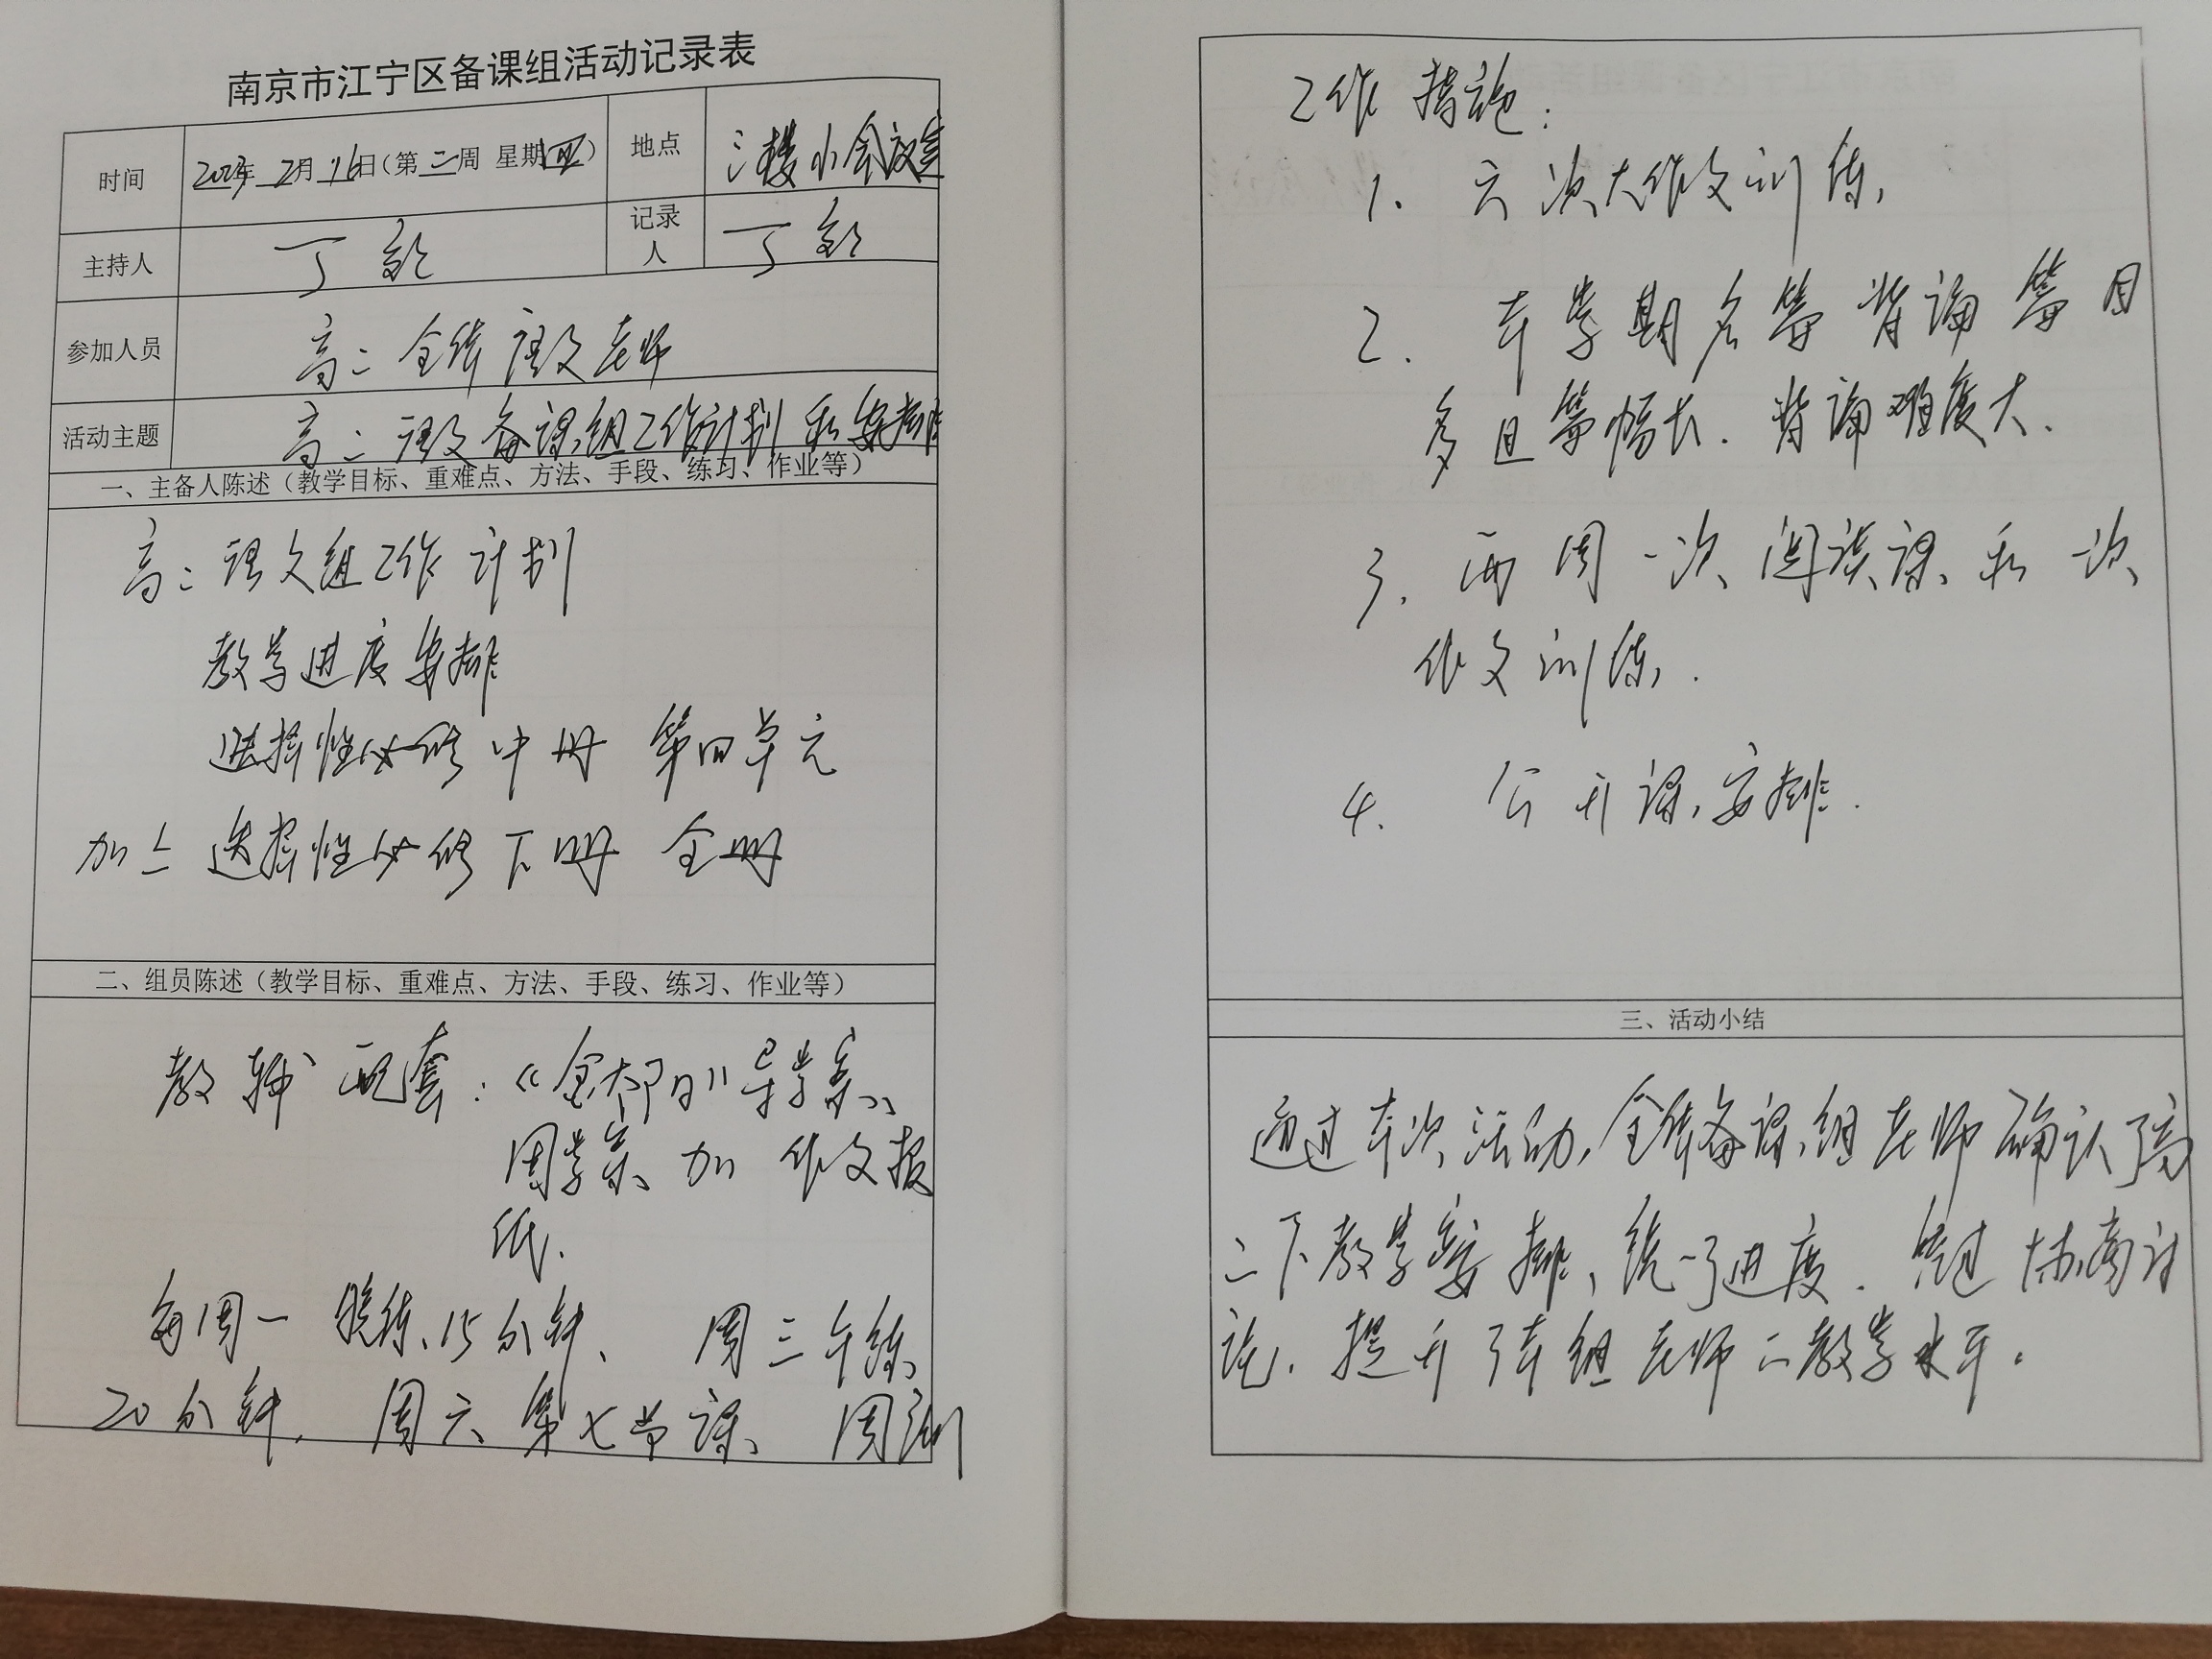 南京市江宁区备课组活动记录表
时间 2023年 2月 16日(第 二 周 星期 四) 地点 三楼小会议室
主持人 丁 记录人 丁
参加人员 高二全体语文老师
活动主题 高二语文备课组工作计划和安排
一、主备人陈述(教学目标、重难点、方法、手段、练习、作业等)
高二语文组工作计划
教学进度安排
选择性必修中册 第四单元
加上选择性必修下册 全册
二、组员陈述(教学目标、重难点、方法、手段、练习、作业等)
教辅配套:《金太阳》导学案、
周学案、加 作文报
纸.
每周一晚练15分钟、 周三午练
20分钟, 周六第七节课 周测
工作措施:
1. 六次大作文训练,
2. 本学期名篇背诵篇目
多且篇幅长. 背诵难度大.
3. 两周一次阅读课和一次
作文训练.
4. 公开课安排.
三、活动小结
通过本次活动,全体备课组老师确认了高
二下教学安排,统一了进度. 经过协商讨
论. 提升了本组老师的教学水平。